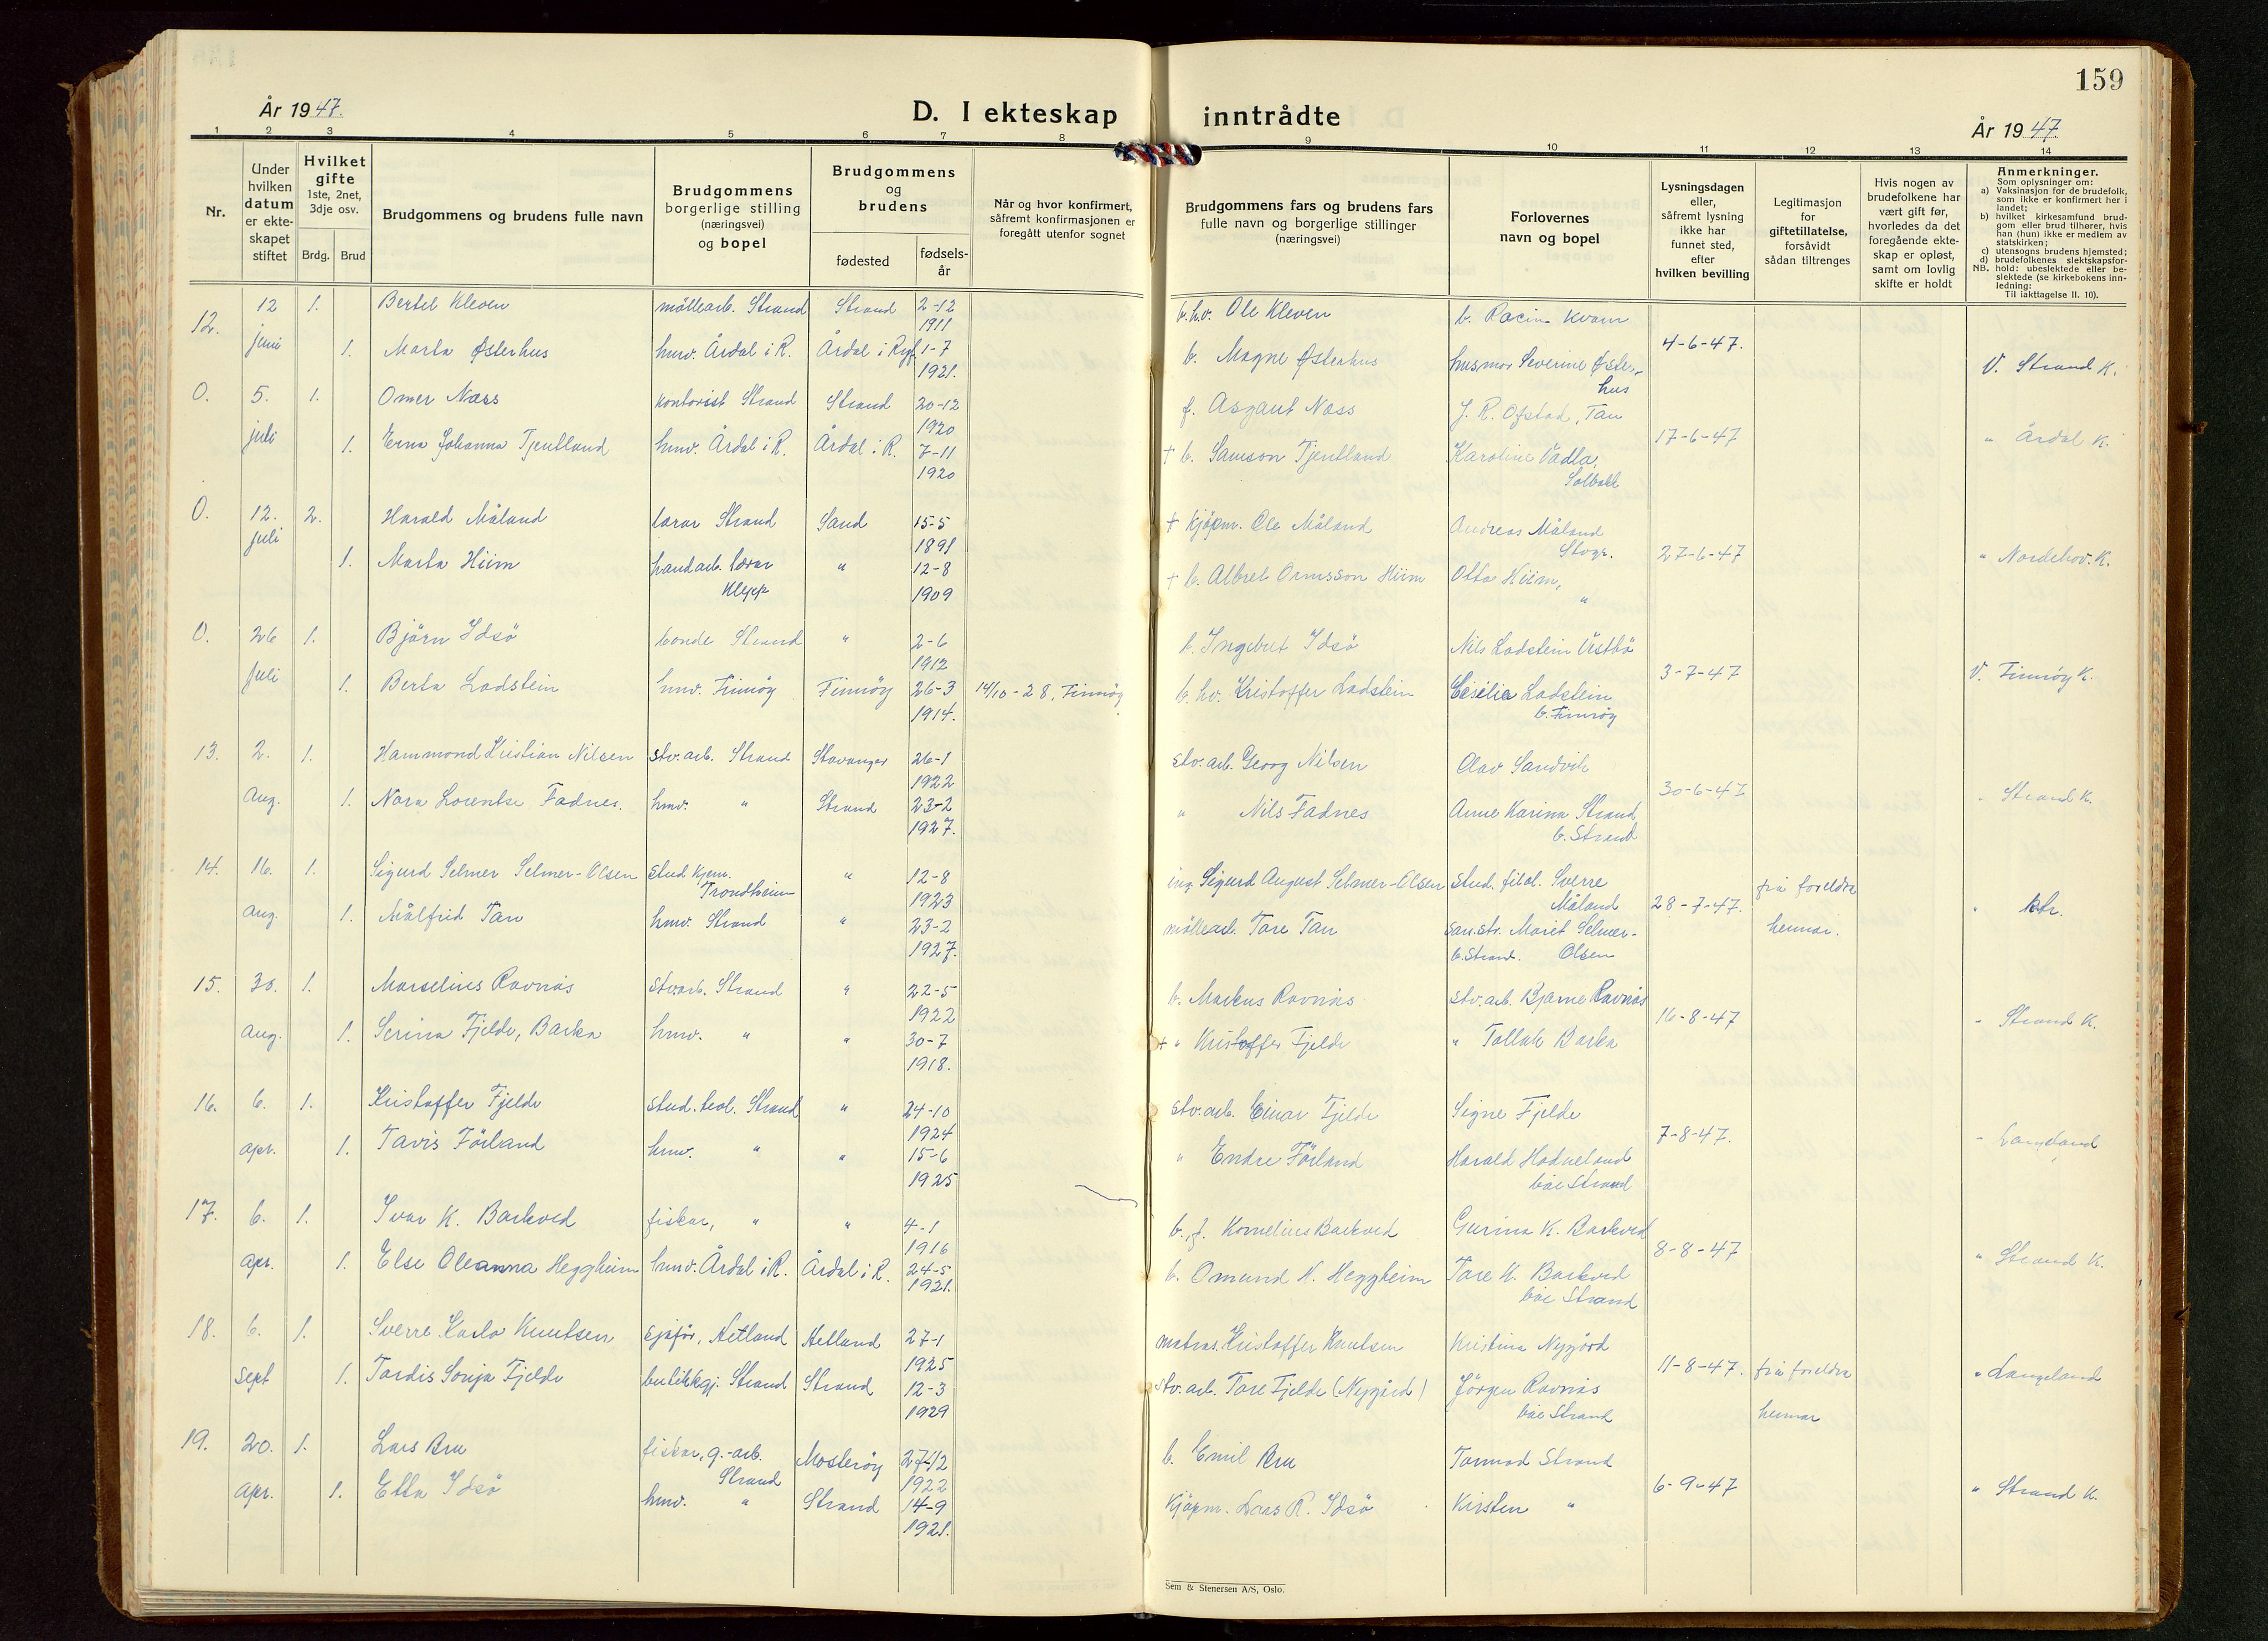 159
År 1947.
D. I ekteskap inntrådte
År 1947.
1 2 3 4 5 6 7 8 9 10 11 12 13 14
Nr.
Under hvilken datum er ekteskapet stiftet
Hvilket gifte 1ste, 2net, 3dje osv.
Brdg. Brud
Brudgommens og brudens fulle navn
Brudgommens borgerlige stilling (næringsvei) og bopel
Brudgommens og brudens
fødested
fødsels-år
Når og hvor konfirmert, såfremt konfirmasjonen er foregått utenfor sognet
Brudgommens fars og brudens fars fulle navn og borgerlige stillinger (næringsvei)
Forlovernes navn og bopel
Lysningsdagen eller, såfremt lysning ikke har funnet sted, efter hvilken bevilling
Legitimasjon for giftetillatelse, forsåvidt sådan tiltrenges
Hvis nogen av brudefolkene har vært gift før, hvorledes da det foregående ekteskap er opløst, samt om lovlig skifte er holdt
Anmerkninger.
Som oplysninger om:
a) Vaksinasjon for de brudefolk, som ikke er konfirmert her i landet;
b) hvilket kirkesamfund brudgom eller brud tilhører, hvis han (hun) ikke er medlem av statskirken;
c) utensogns brudens hjemsted;
d) brudefolkenes slektskapsforhold: ubeslektede eller beslektede (se kirkebokens innledning:
NB.
Til iakttagelse II. 10).
12. 12 juni 1. Bertel Kleven möllearb. Strand Strand 2-12 1911 b.hv. Ole Kleven b. Kvam 4-6-47. V. Strand K.
1. Marta Østerhus hmv. Årdal i R. Årdal i Ryf. 1-7 1921. b. Magne Østerhus husmor Severine Østerhus
0. 5. juli 1. Omer Næss kontorist Strand Strand 20-12 1920 f. Asgaut Næss J. R. Ofstad, Tau 17-6-47 " Årdal K.
1. Erna Johanna Tjentland hmv. Årdal i R. Årdal i R. 7-11 1920 + b. Samson Tjentland Karoline Vadla, Solbakk
0. 12. juli 2. Harald Måland lærar Strand Sand 15-5 1891 + Kjøpm. Ole Måland Andreas Måland Stvgr. 27-6-47 " Norderhov. K.
1. Marta Hiim handarb. lærar Klepp " 12-8 1909 + b. Albret Ormsson Hiim Otto Hiim, "
0. 26 juli 1. Björn Idsö bonde Strand " 2-6 1912 b. Ingebret Idsö Nils Ladstein Östbö 3-7-47 V. Finnöy K.
1. Berta Ladstein hmv. Finnöy Finnöy 26-3 1914. 14/10-28, Finnöy b. hv. Kristoffer Ladstein Cesilie Ladstein b. Finnöy
13. 2. Aug. 1. Hammond Kristian Nilsen stv.arb. Strand Stavanger 26-1 1922 stv.arb. Georg Nilsen Olav Sandvik 30-6-47 " Strand K.
1. Nora Lorentse Fadnes. hmv. " Strand 23-2 1927. " Nils Fadnes Anne Karina Strand b. Strand
14. 16. aug. 1. Sigurd Selmer Selmer-Olsen stud kjem. Trondheim " 12-8 1923 ing. Sigurd August Selmer-Olsen stud. filol. Sverre Måland 28-7-47. frå foreldra heimar. "
1. Målfrid Tau hmv. Strand " 23-2 1927. möllearb. Tore Tau san.str. Marit Selmer-Olsen b. Strand.
15. 30. aug. 1. Marselius Ravnås stv.arb. Strand " 22-5 1922 b. Markus Ravnås stv.arb. Bjarne Ravnås 16-8-47 " Strand K.
1. Serina Fjelde, Barka hmv. " " 30-7 1918. + " Kristoffer Fjelde " Tollak Barka
16. 6. apr. 1. Kristoffer Fjelde stud. teol. Strand " 24-10 1924 stv.arb. Einar Fjelde Signe Fjelde 7-8-47. " Langeland
1. Tavis Förland hmv. " " 15-6 1925 " Endre Förland Harald Hodneland båe Strand
17. 6. apr. 1. Ivar K. Barkved fiskar, " " 4-1 1916 b., f. Kornelius Barkved Gurina K. Barkved 8-8-47 " Strand K.
1. Else Oleanna Heggheim hmv. Årdal i R. Årdal i R. 24-5 1921. b. Omund H. Heggheim Tore K. Barkved båe Strand
18. 6. sept 1. Sverre Karlo Knutsen sjåför, Hetland Hetland 27-1 1925 matros. Kristoffer Knutsen Kristina Nygård 11-8-47. frå foreldra heimar " Langeland
1. Tordis Sonja Fjelde butikkgj. Strand Strand 12-3 1929 stv.arb. Tore Fjelde (Nygård) Jörgen Ravnås båe Strand
19. 20. apr. 1. Lars Bru fiskar, g.-arb. Strand Mosteröy 27-12 1922 b. Emil Bru Tormod Strand 6-9-47 " Strand K.
1. Etta Idsö hmv. " Strand 14-9 1921. Kjöpm. Lars R. Idsö Kirsten "
Sem & Stenersen A/S, Oslo.